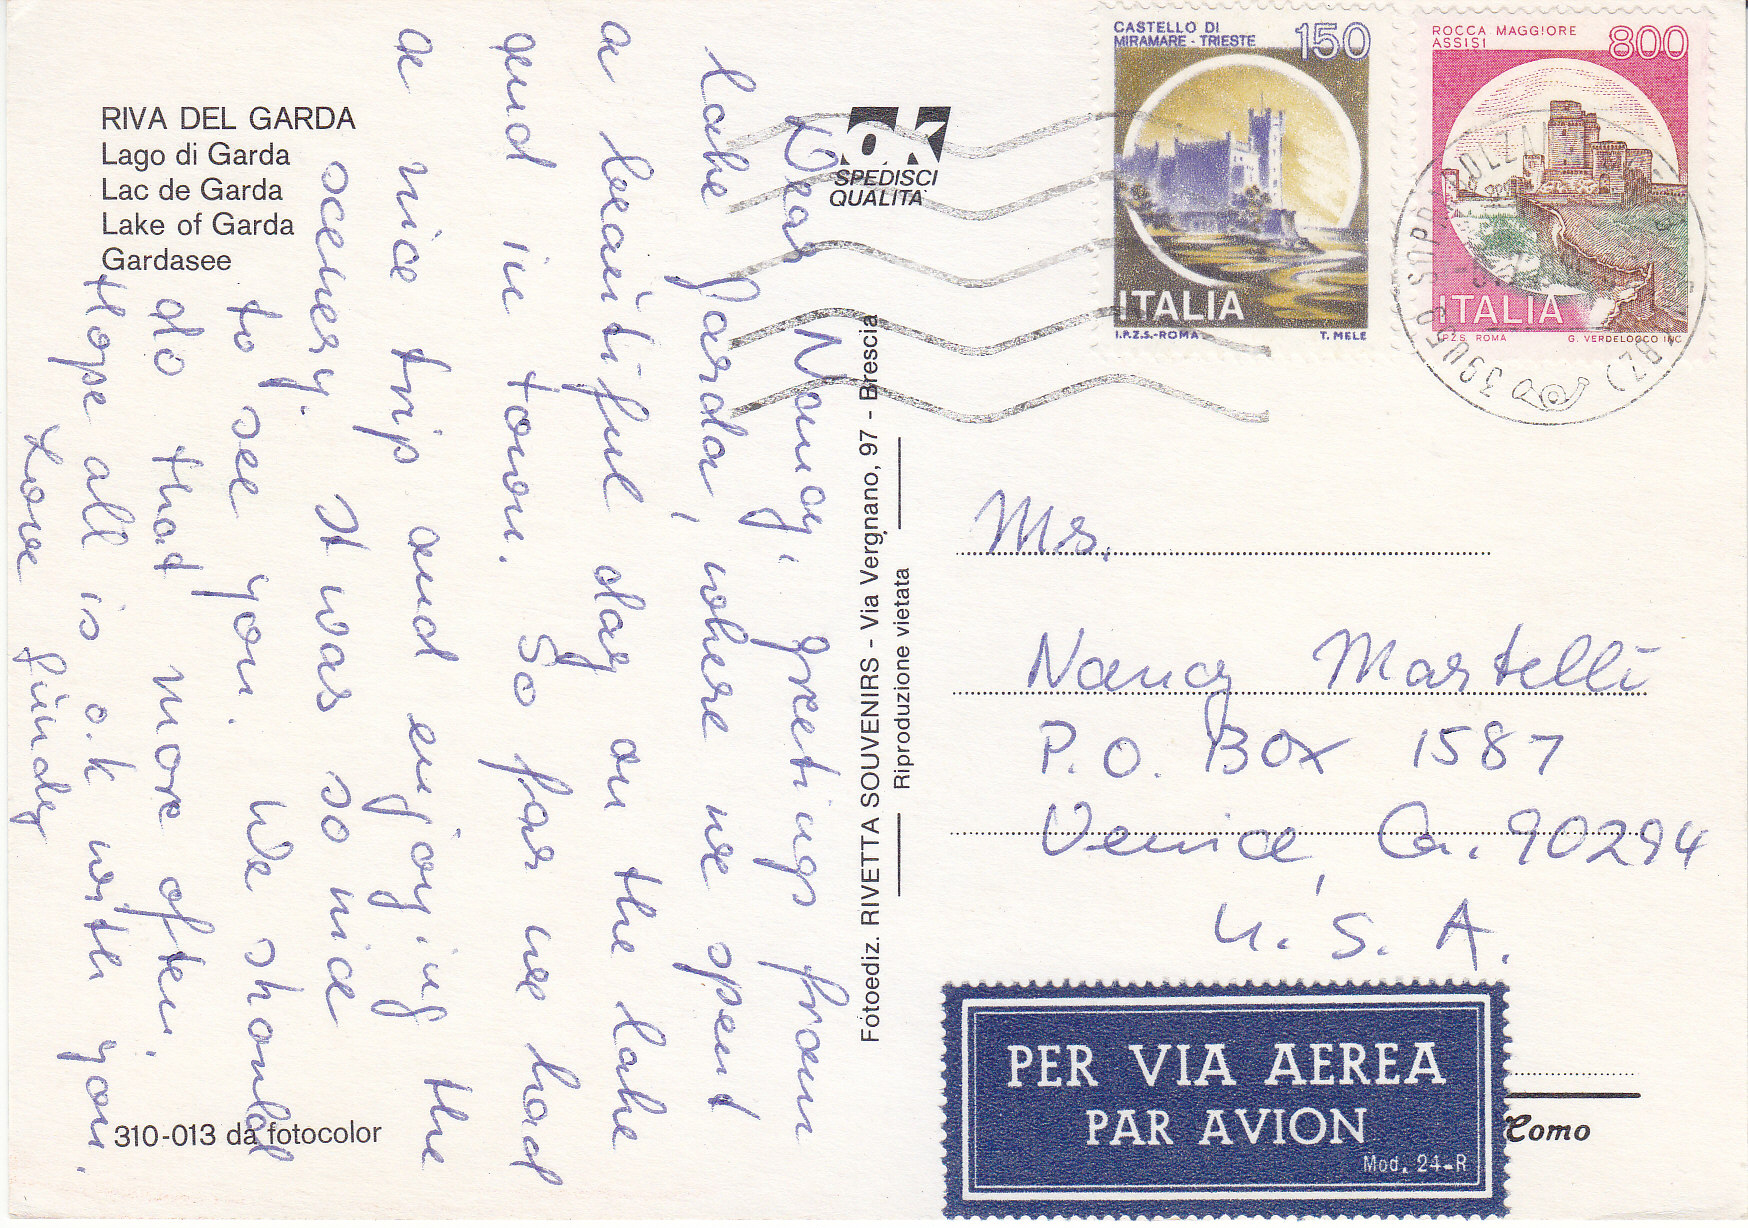 RIVA DEL GARDA
Lago di Garda
Lac de Garda
Lake of Garda
Gardasee
ok
SPEDISCI
QUALITA'
CASTELLO DI
MIRAMARE - TRIESTE
150
ITALIA
I.P.Z.S.-ROMA
T. MELE
ROCCA MAGGIORE
ASSISI
800
ITALIA
I.P.Z.S. ROMA
G. VERDELOCCO INC.
39050 SOPRABOLZANO (BZ)
Dear Nancy, greetings from
Lake Garda, where we spent
a beautiful day on the lake
and in town. So far we had
a nice trip and enjoying the
scenery. It was so nice
to see you. We should
do that more often,
Hope all is o.k with you.
Love Lindy
Fotoediz. RIVETTA SOUVENIRS - Via Vergnano, 97 - Brescia
Riproduzione vietata
Ms.
Nancy Martelli
P.O. Box 1587
Venice, Ca. 90294
U.S.A.
PER VIA AEREA
PAR AVION
Mod. 24-R
Como
310-013 da fotocolor